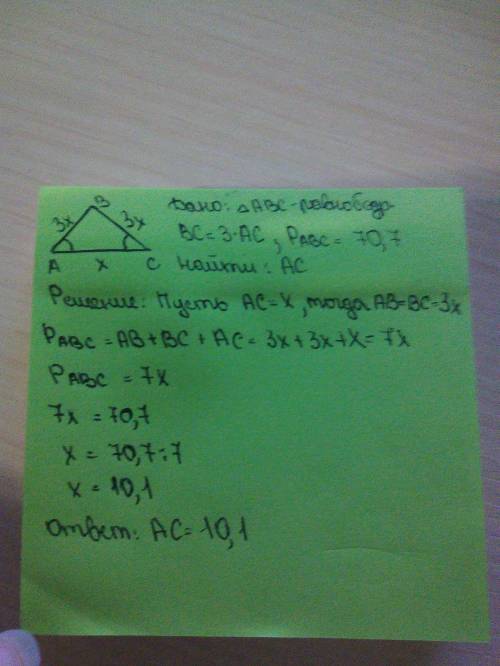 B
3x 3x
A x C
Дано: △ABC-равнобедр
BC=3·AC, PABC= 70,7
Найти: AC
Решение: Пусть AC=x, тогда AB=BC=3x
PABC=AB+BC+AC=3x+3x+x=7x
PABC=7x
7x=70,7
x=70,7:7
x=10,1
Ответ: AC=10,1